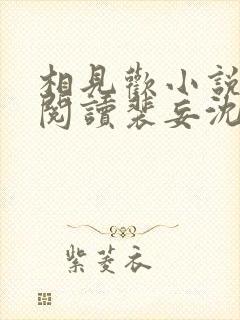 相見歡小說
閱讀裴妄沈
紫菱衣